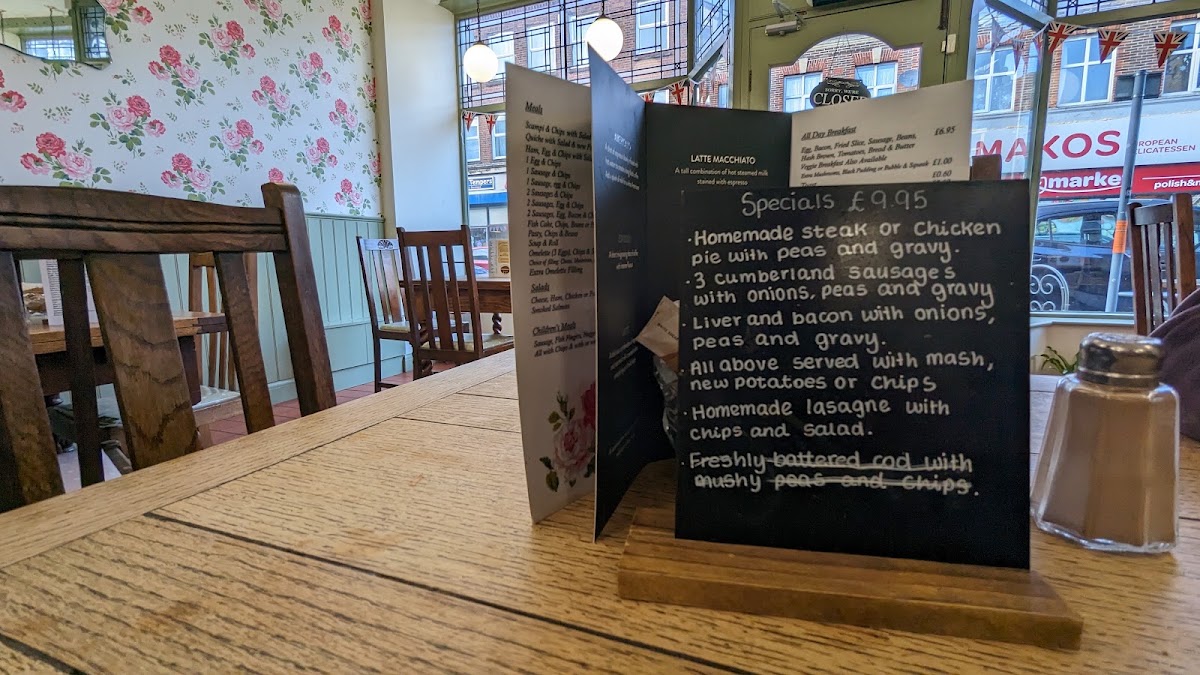 Meals
Scampi & Chips with Salad
Quiche with Salad & new P
Ham, Egg & Chips with
1 Egg & Chips
1 Sausage & Chips
1 Sausage, egg & Chips
2 Sausages & Chips
2 Sausages, Egg & Chips
2 Sausages, Egg, Bacon & Ch
Fish Cake, Chips, Beans or
Pasty, Chips & Beans
Soup & Roll
Omelette (3 Eggs), Chips &
Extra Omelette Filling
Salads
Cheese, Ham, Chicken or
Smoked Salmon
Children's Meals
Sausage, Fish Fingers,
All with Chips &
LATTE MACCHIATO
A tall combination of hot steamed milk
stained with espresso
SORRY, WE'RE
CLOSED
All Day Breakfast £6.95
Egg, Bacon, Fried Slice, Sausage, Beans,
Hash Brown, Tomatoes, Bread & Butter
Veggie Breakfast Also Available
Extra Mushrooms, Black Pudding or Bubble & Squeak £1.00
£0.60
MAKOS
ROPEAN
ELICATESSEN
market
polish&
Specials £9.95
· Homemade steak or chicken
pie with peas and gravy.
· 3 cumberland sausages
with onions, peas and gravy
· Liver and bacon with onions,
peas and gravy.
· All above served with mash,
new potatoes or chips
· Homemade lasagne with
chips and salad.
· Freshly battered cod with
mushy peas and chips.